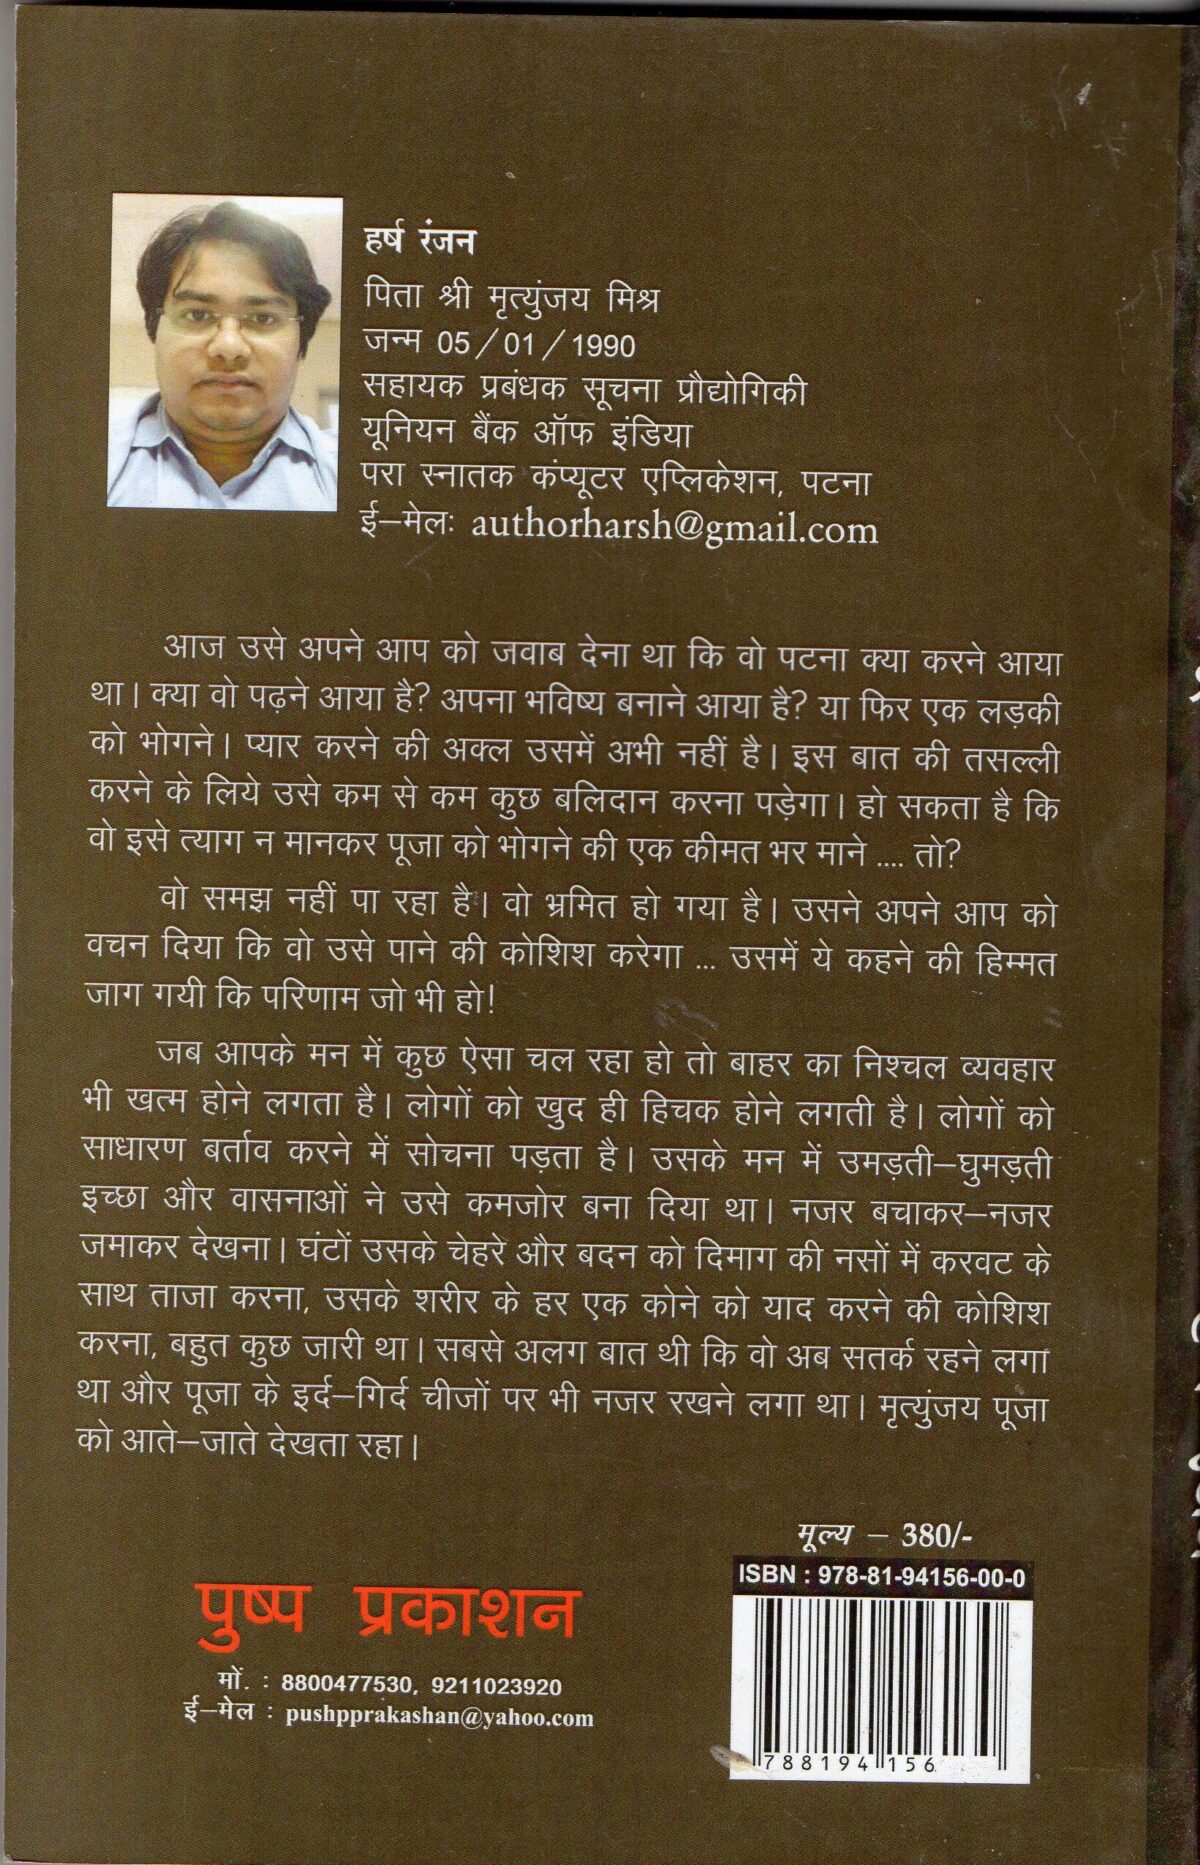 हर्ष रंजन
पिता श्री मृत्युंजय मिश्र
जन्म 05/01/1990
सहायक प्रबंधक सूचना प्रौद्योगिकी
यूनियन बैंक ऑफ इंडिया
परा स्नातक कंप्यूटर एप्लिकेशन, पटना
ई–मेलः authorharsh@gmail.com
आज उसे अपने आप को जवाब देना था कि वो पटना क्या करने आया
था। क्या वो पढ़ने आया है? अपना भविष्य बनाने आया है? या फिर एक लड़की
को भोगने। प्यार करने की अक्ल उसमें अभी नहीं है। इस बात की तसल्ली
करने के लिये उसे कम से कम कुछ बलिदान करना पड़ेगा। हो सकता है कि
वो इसे त्याग न मानकर पूजा को भोगने की एक कीमत भर माने .... तो?
वो समझ नहीं पा रहा है। वो भ्रमित हो गया है। उसने अपने आप को
वचन दिया कि वो उसे पाने की कोशिश करेगा ... उसमें ये कहने की हिम्मत
जाग गयी कि परिणाम जो भी हो!
जब आपके मन में कुछ ऐसा चल रहा हो तो बाहर का निश्चल व्यवहार
भी खत्म होने लगता है। लोगों को खुद ही हिचक होने लगती है। लोगों को
साधारण बर्ताव करने में सोचना पड़ता है। उसके मन में उमड़ती–घुमड़ती
इच्छा और वासनाओं ने उसे कमजोर बना दिया था। नजर बचाकर–नजर
जमाकर देखना। घंटों उसके चेहरे और बदन को दिमाग की नसों में करवट के
साथ ताजा करना, उसके शरीर के हर एक कोने को याद करने की कोशिश
करना, बहुत कुछ जारी था। सबसे अलग बात थी कि वो अब सतर्क रहने लगा
था और पूजा के इर्द–गिर्द चीजों पर भी नजर रखने लगा था। मृत्युंजय पूजा
को आते–जाते देखता रहा।
मूल्य – 380/-
ISBN : 978-81-94156-00-0
788194 156
पुष्प प्रकाशन
मों. : 8800477530, 9211023920
ई–मेल : pushpprakashan@yahoo.com